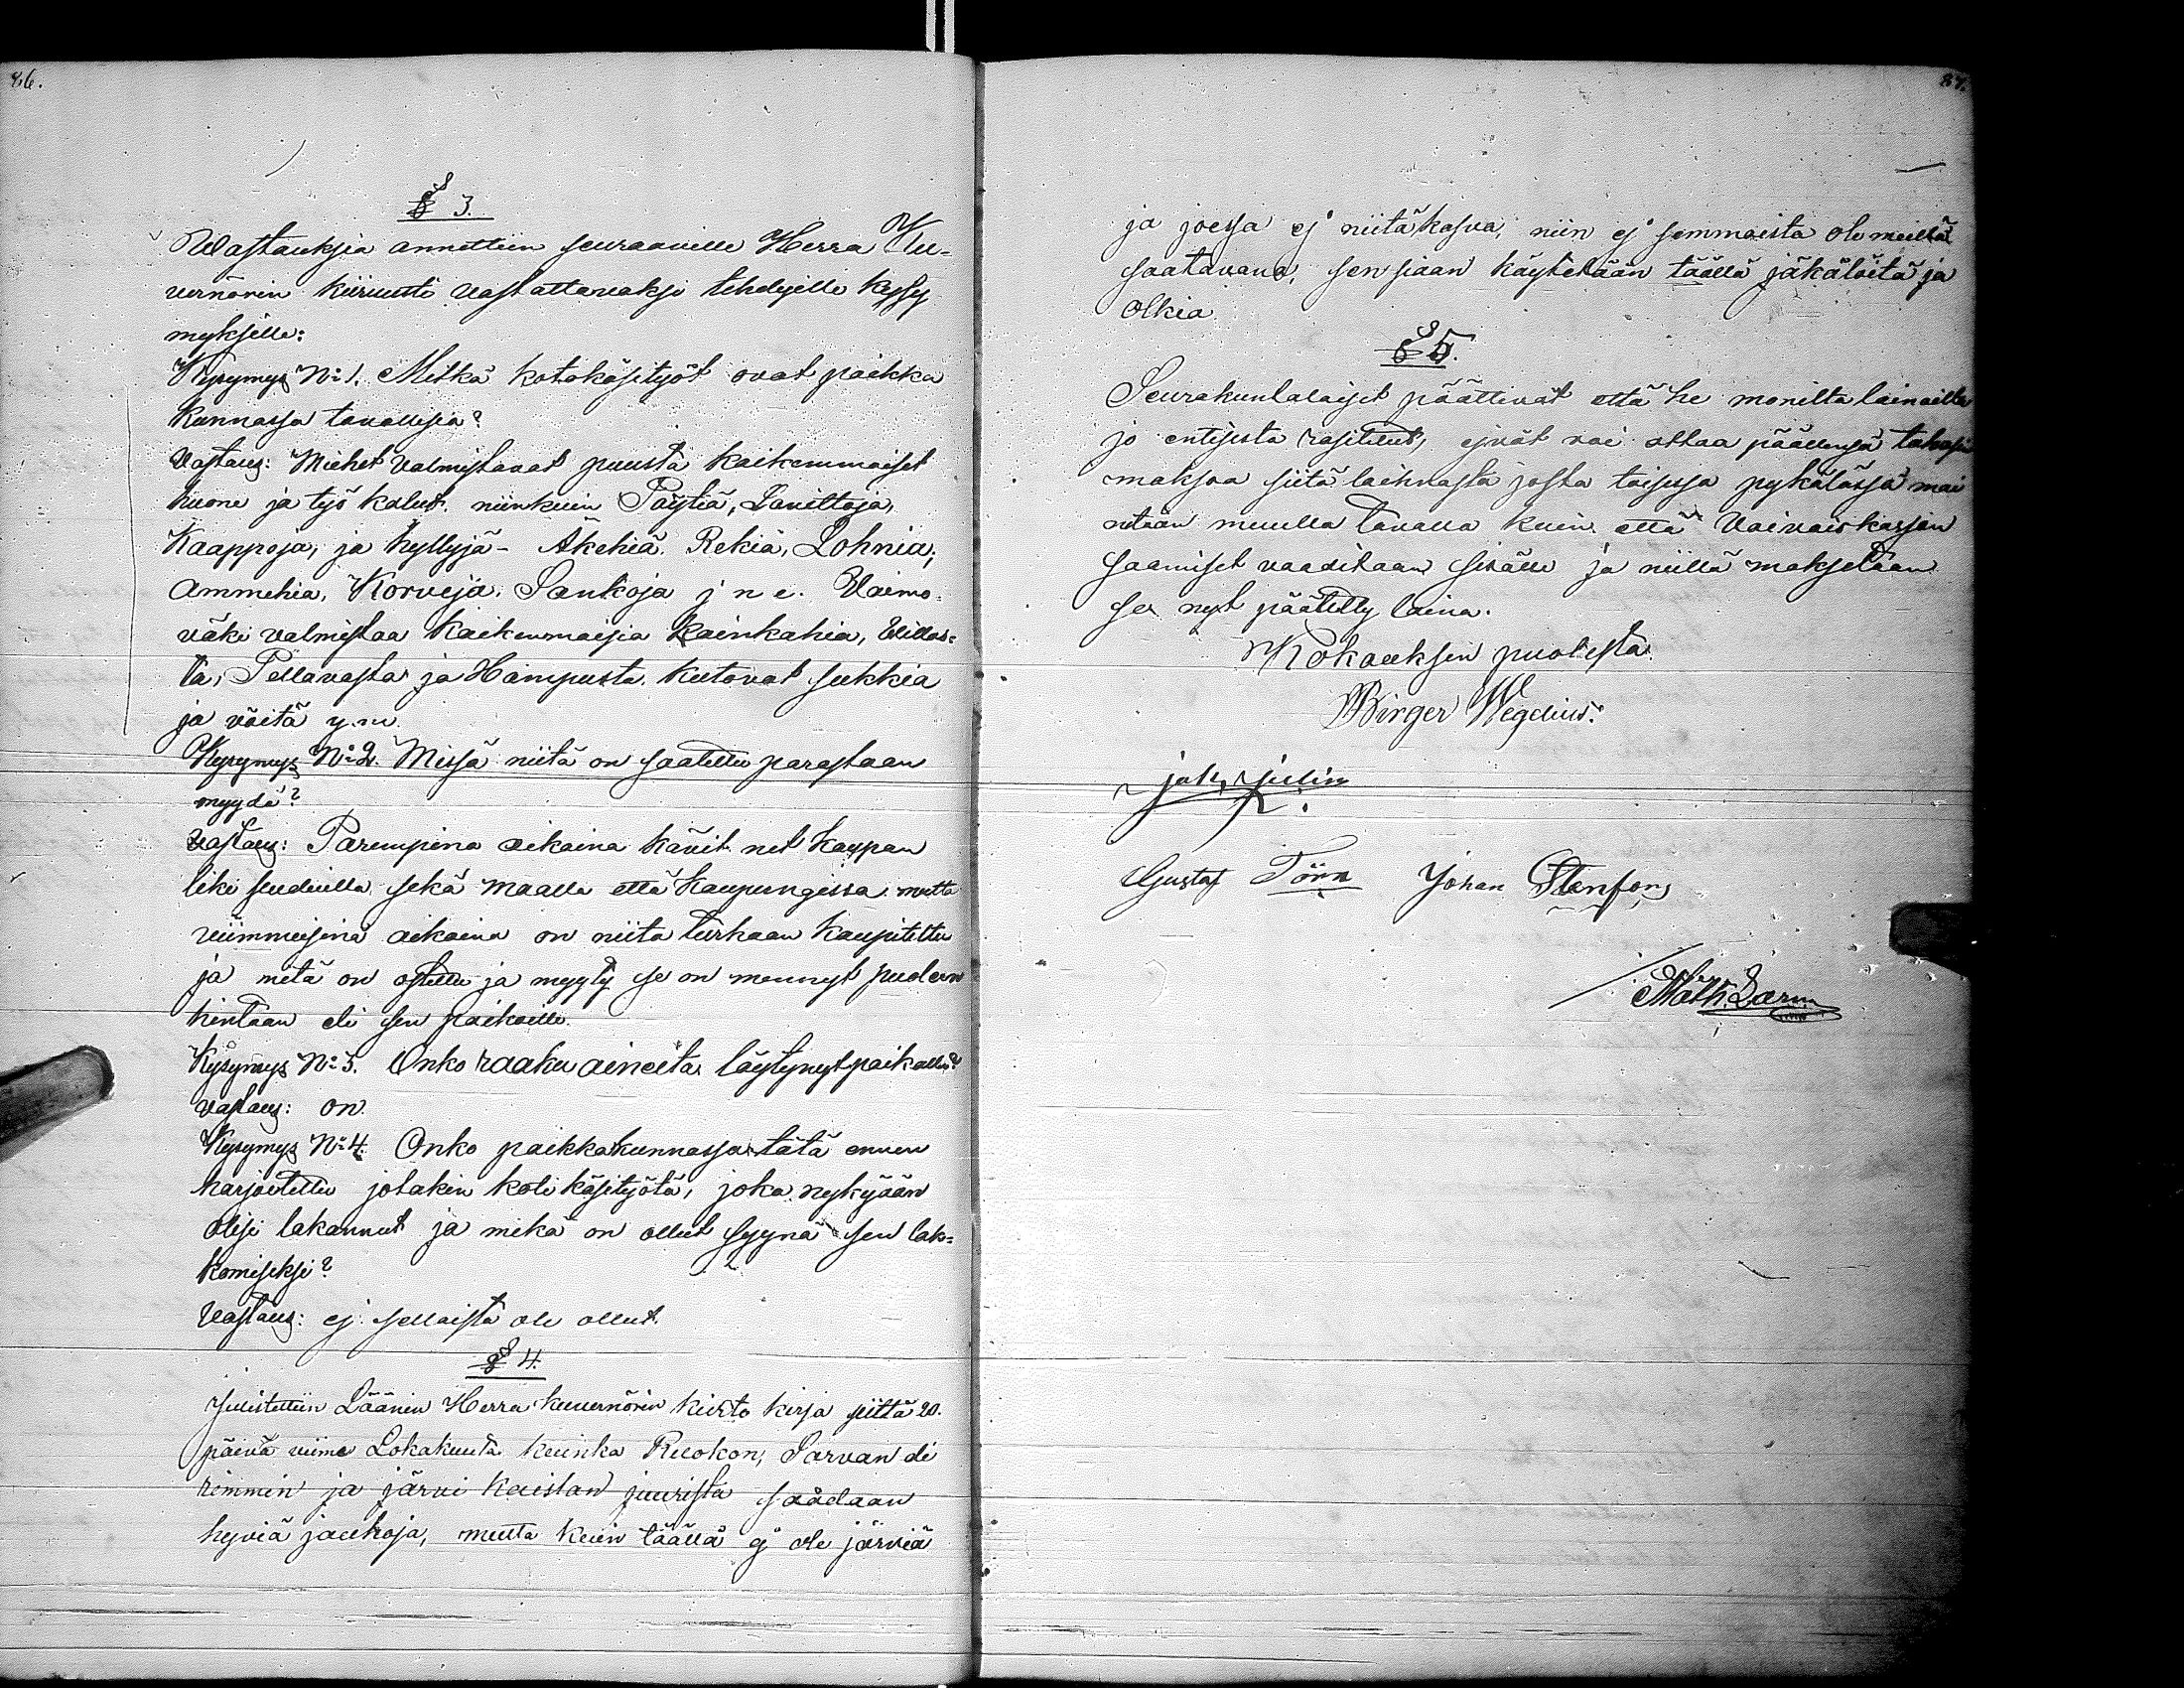 86.
§ 3.
Wastauksia annettiin seuraaville Herra Ku-
vernörin kiiruusti vastattavaksi tehdyille kysy
myksille:
Kysymys No 1. Mitkä kotokäsityöt ovat paikka
kunnassa tavallisia?
Vastaus: Miehet valmistavat puusta kaikenmaiset
huone ja työ kalut, niinkuin Pöytiä, Laviltoja,
Kaappoja, ja hyllyjä - Äkehiä, Rekiä, Lohnia,
Ammehia, Korveja, Sankoja j n e. Vaimo-
väki valmistaa kaikenmaisia kainkahia, Villas-
ta, Pellavasta ja Hampusta, kutovat sukkia
ja vöitä y.m.
Kysymys No 2. Missä niitä on saatettu parastaan
myydä?
Vastaus: Parempina aikaina kävit net kaupan
liki seuduilla sekä maalla että kaupungissa mutta
viimmeisinä aikaina on niitä turhaan kaupitettu
ja mitä on ostettu ja myyty se on mennyt puoleen
hintaan eli sen paikoille.
Kysymys No 3. Onko raaku aineita löytynyt paikalla?
Vastaus: on.
Kysymys No 4. Onko paikkakunnassa tätä ennen
harjoitettu jotakin koti käsityötä, joka nykyään
olisi lakannut ja mikä on ollut syynä sen lak-
komiseksi?
Vastaus: ej sellaista ole ollut.
§ 4.
Julistettiin Läänin Herra kuvernörin kierto kirja siittä 20.
päivä viime Lokakuuta kuinka Ruokon, Sarvan eli
rimmin ja järvi kaislan juurista saadaan
hyviä jauhoja, mutta kuin täällä ej ole järviä
87.
ja joessa ej niitä kasva, niin ej semmoista ole meillä
saatavana, sen siaan käytetään täällä jäkälöitä ja
olkia.
§ 5.
Seurakuntalaiset päättivät että he monilta lainoilta
jo entisestä rasitetut, ejvät voi ottaa päällensä takasi
maksaa siitä laihnasta josta toisessa pykälässä mai
nitaan muulla tavalla kuin että Vaivaiskassan
saamiset vaaditaan sisälle ja niillä maksetaan
se nyt päätetty laina.
Kokouksen puolesta.
Birger Wegelius.
Juho Julin
Gustaf Törn Johan Stenfors
Math. Barm